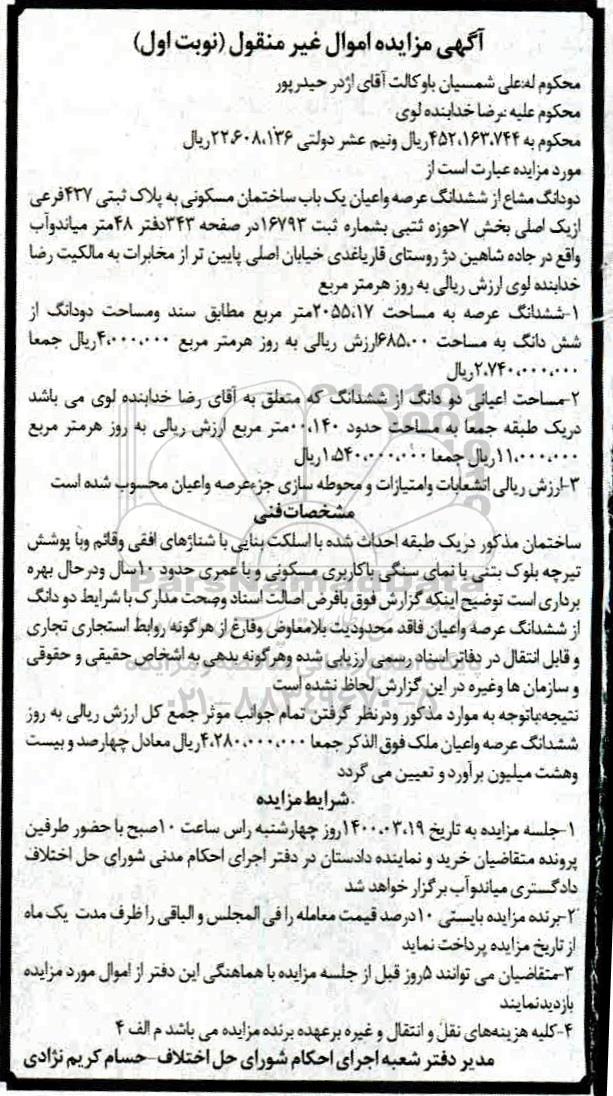 آگهی مزایده اموال غیر منقول (نوبت اول)
محکوم له:علی شمسیان باوکالت آقای اژدر حیدرپور
محکوم علیه :رضا خدابنده لوی
محکوم به ۴۵۲،۱۶۳،۷۴۴ریال ونیم عشر دولتی ۲۲،۶۰۸،۱۳۶ریال
مورد مزایده عبارت است از
دودانگ مشاع از ششدانگ عرصه واعیان یک باب ساختمان مسکونی به پلاک ثبتی ۴۳۷فرعی
ازیک اصلی بخش ۷حوزه ثتبی بشماره ثبت ۱۶۷۹۳در صفحه ۳۴۳دفتر ۴۸متر میاندوآب
واقع در جاده شاهین دژ روستای قارباغدی خیابان اصلی پایین تر از مخابرات به مالکیت رضا
خدابنده لوی ارزش ریالی به روز هرمتر مربع
۱-ششدانگ عرصه به مساحت ۲۰۵۵،۱۷متر مربع مطابق سند ومساحت دودانگ از
شش دانگ به مساحت ۶۸۵،۰۰ارزش ریالی به روز هرمتر مربع ۴،۰۰۰،۰۰۰ریال جمعا
۲،۷۴۰،۰۰۰،۰۰۰ریال
۲-مساحت اعیانی دو دانگ از ششدانگ که متعلق به آقای رضا خدابنده لوی می باشد
دریک طبقه جمعا به مساحت حدود ۰۰،۱۴۰متر مربع ارزش ریالی به روز هرمتر مربع
۱۱،۰۰۰،۰۰۰ریال جمعا ۱،۵۴۰،۰۰۰،۰۰۰ریال
۳-ارزش ریالی انشعابات وامتیازات و محوطه سازی جزءعرصه واعیان محسوب شده است
مشخصات فنی
ساختمان مذکور دریک طبقه احداث شده با اسلکت بنایی با شناژهای افقی وقائم وبا پوشش
تیرچه بلوک بتنی با نمای سنگی باکاربری مسکونی و با عمری حدود ۱۰سال ودرحال بهره
برداری است توضیح اینکه گزارش فوق بافرض اصالت اسناد وصحت مدارک با شرایط دو دانگ
از ششدانگ عرصه واعیان فاقد محدودیت بلامعاوض وفارغ از هرگونه روابط استجاری تجاری
و قابل انتقال در دفاتر اسناد رسمی ارزیابی شده وهرگونه بدهی به اشخاص حقیقی و حقوقی
و سازمان ها وغیره در این گزارش لحاظ نشده است
نتیجه:باتوجه به موارد مذکور ودرنظر گرفتن تمام جوانب موثر جمع کل ارزش ریالی به روز
ششدانگ عرصه واعیان ملک فوق الذکر جمعا ۴،۲۸۰،۰۰۰،۰۰۰ریال معادل چهارصد و بیست
وهشت میلیون برآورد و تعیین می گردد
شرایط مزایده
۱-جلسه مزایده به تاریخ ۱۴۰۰،۰۳،۱۹روز چهارشنبه راس ساعت ۱۰صبح با حضور طرفین
پرونده متقاضیان خرید و نماینده دادستان در دفتر اجرای احکام مدنی شورای حل اختلاف
دادگستری میاندوآب برگزار خواهد شد
۲-برنده مزایده بایستی ۱۰درصد قیمت معامله را فی المجلس و الباقی را ظرف مدت یک ماه
از تاریخ مزایده پرداخت نماید
۳-متقاضیان می توانند ۵روز قبل از جلسه مزایده با هماهنگی این دفتر از اموال مورد مزایده
بازدیدنمایند
۴-کلیه هزینه‌های نقل و انتقال و غیره برعهده برنده مزایده می باشد م الف ۴
مدیر دفتر شعبه اجرای احکام شورای حل اختلاف-حسام کریم نژادی
ParsNamadData
۰۲۱-۸۸۳۴۹۶۷۰-۵